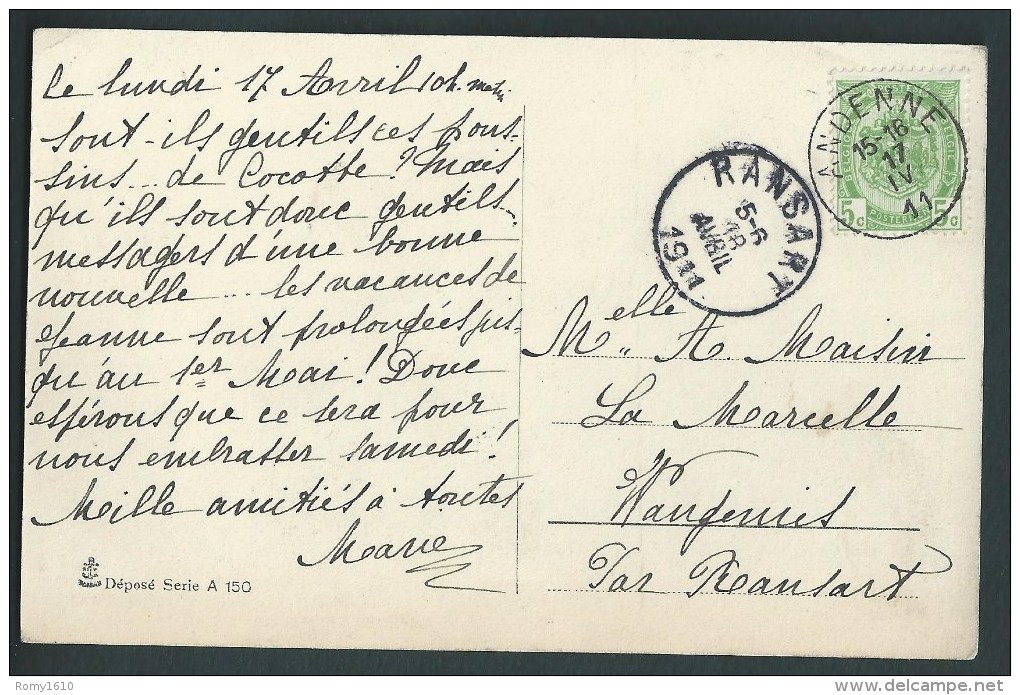 Le lundi 17 Avril 10h. matin.
sont-ils gentils ces pous-
sins... de Cocotte? Mais
qu'ils sont donc gentils
messagers d'une bonne
nouvelle... les vacances de
Jeanne sont prolongées jus-
qu'au 1er Mai! Donc
espérons que ce sera pour
nous embrasser samedi!
Mille amitiés à toutes
Marie
Déposé Serie A 150
ANDENNE
15-16
17
IV
11
5c POSTERIJEN 5c
RANSART
5-6
18
AVRIL
1911
Melle A. Maisin
La Marcelle
Wangenies
Par Ransart
Romy1610
www.delcampe.net